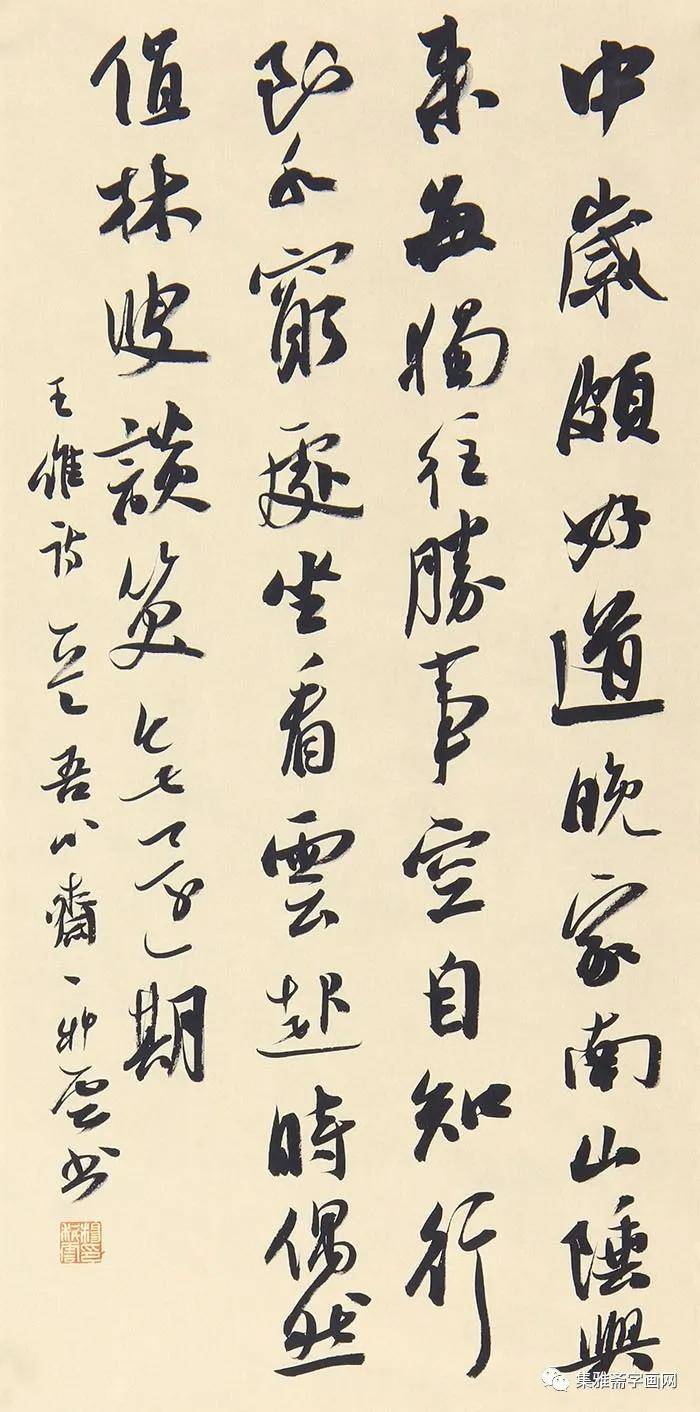 中歲頗好道晚家南山陲興
來每獨往勝事空自知行
到水窮處坐看雲起時偶然
值林叟談笑無還期
王維詩 吾心齋 雲书
集雅斋字画网